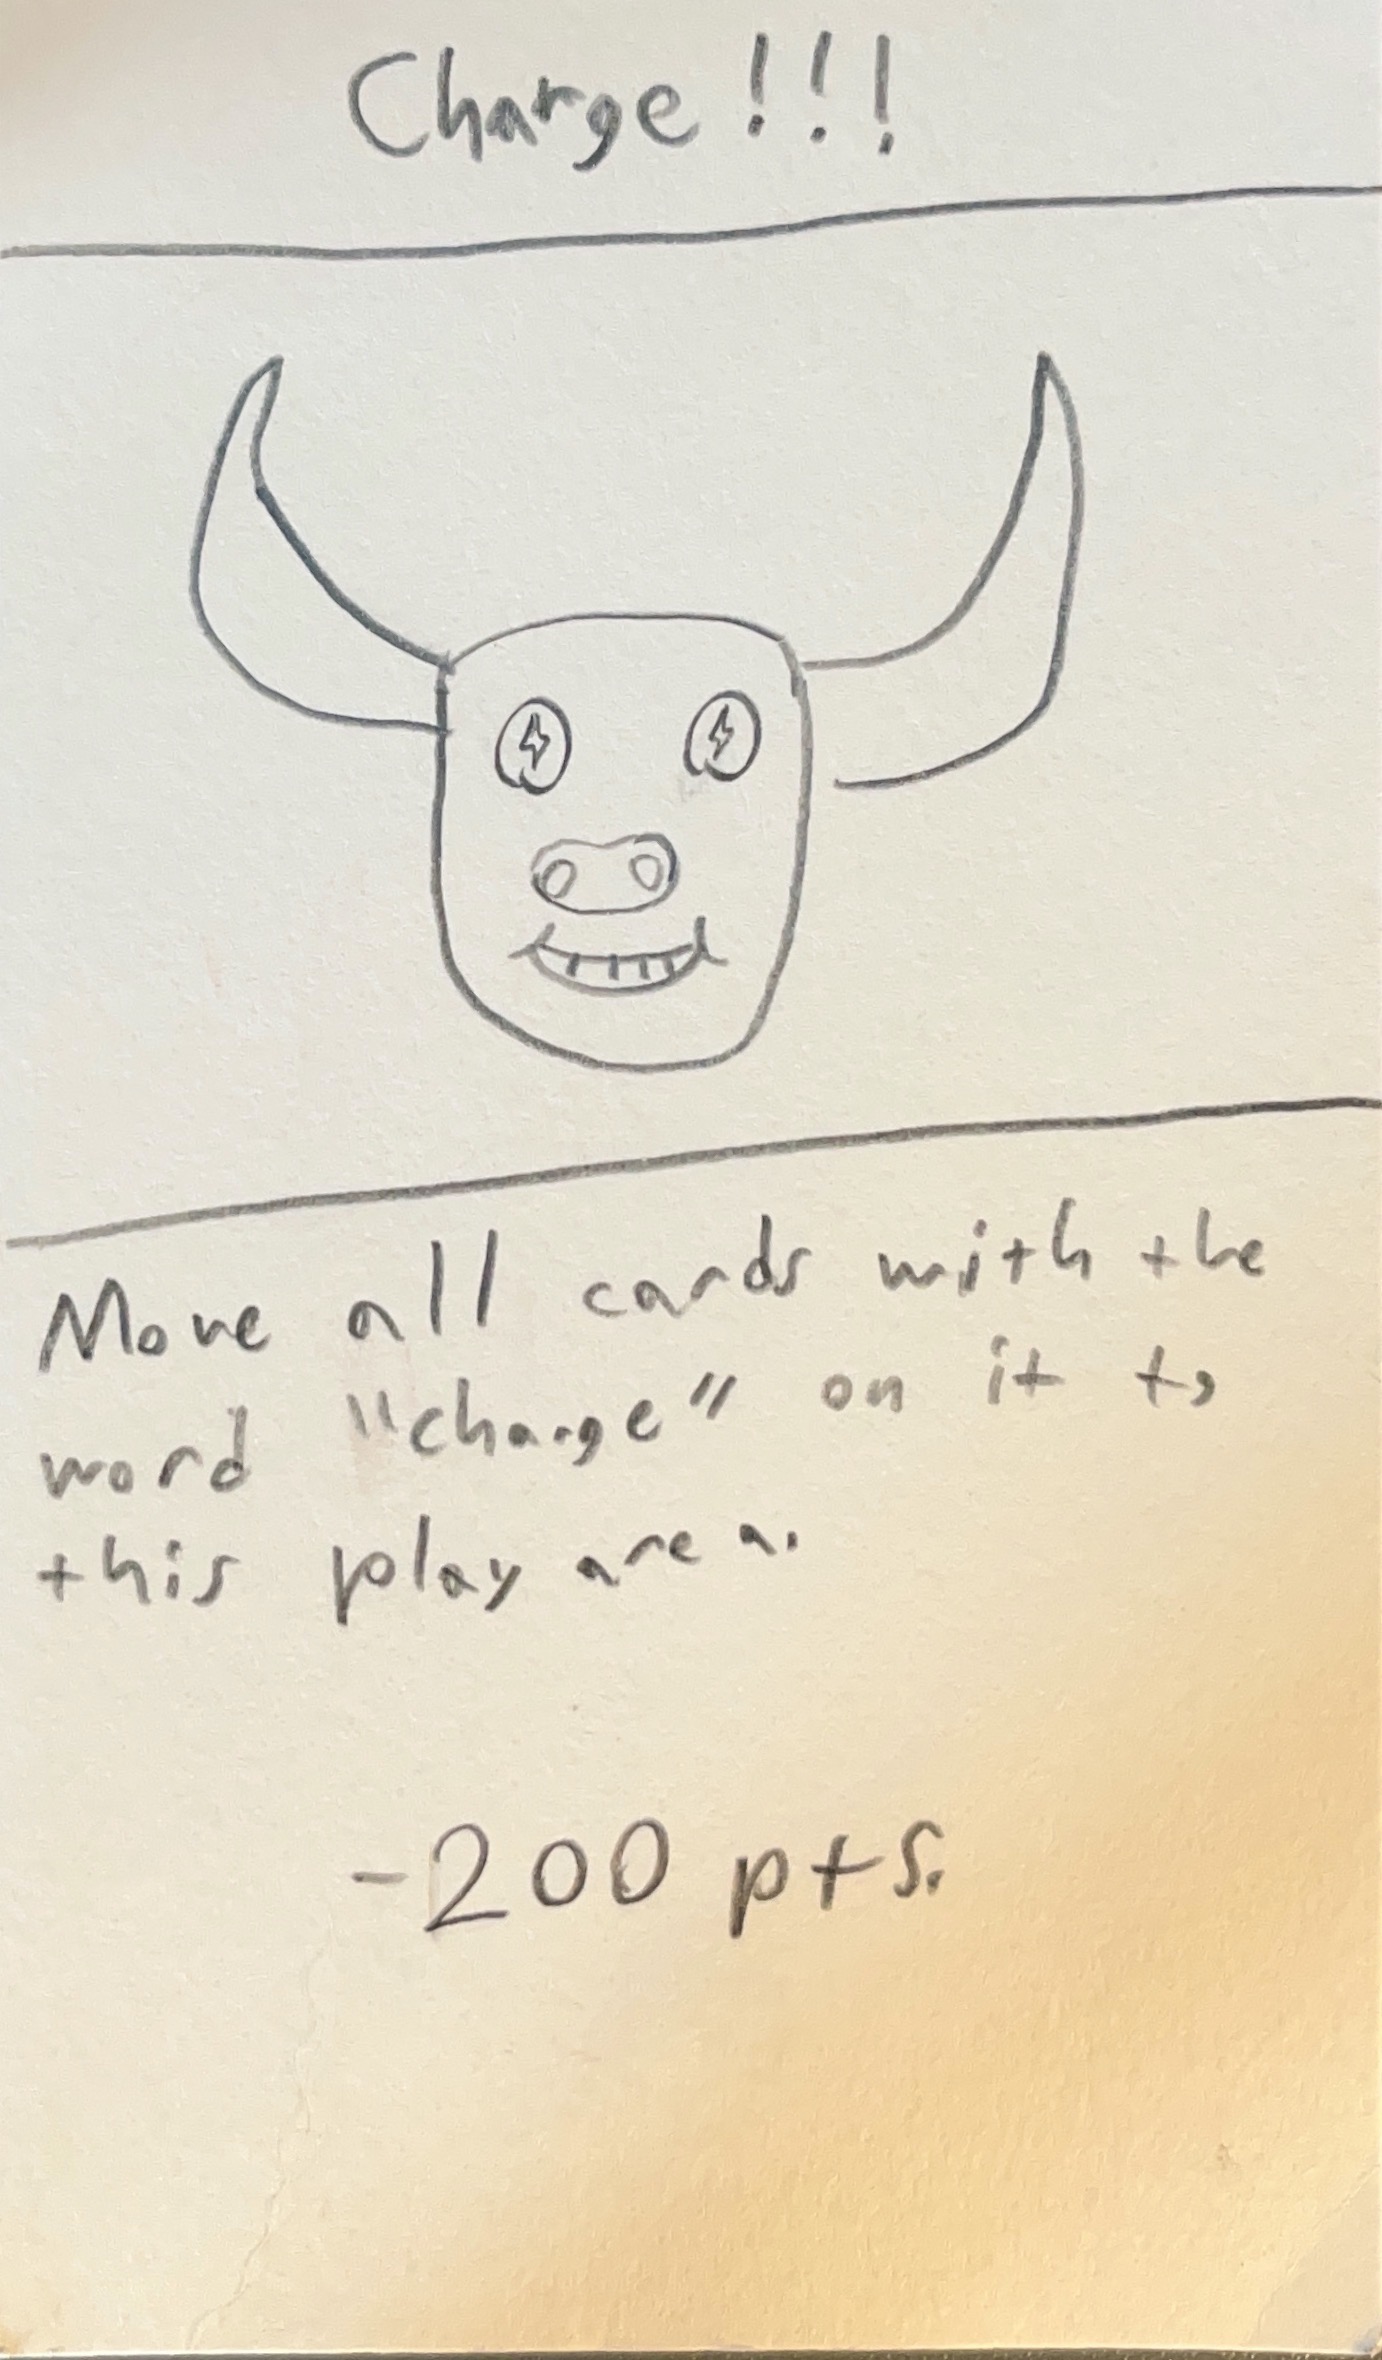 Charge!!!
Move all cards with the
word "charge" on it to
this play area.
-200 pts.